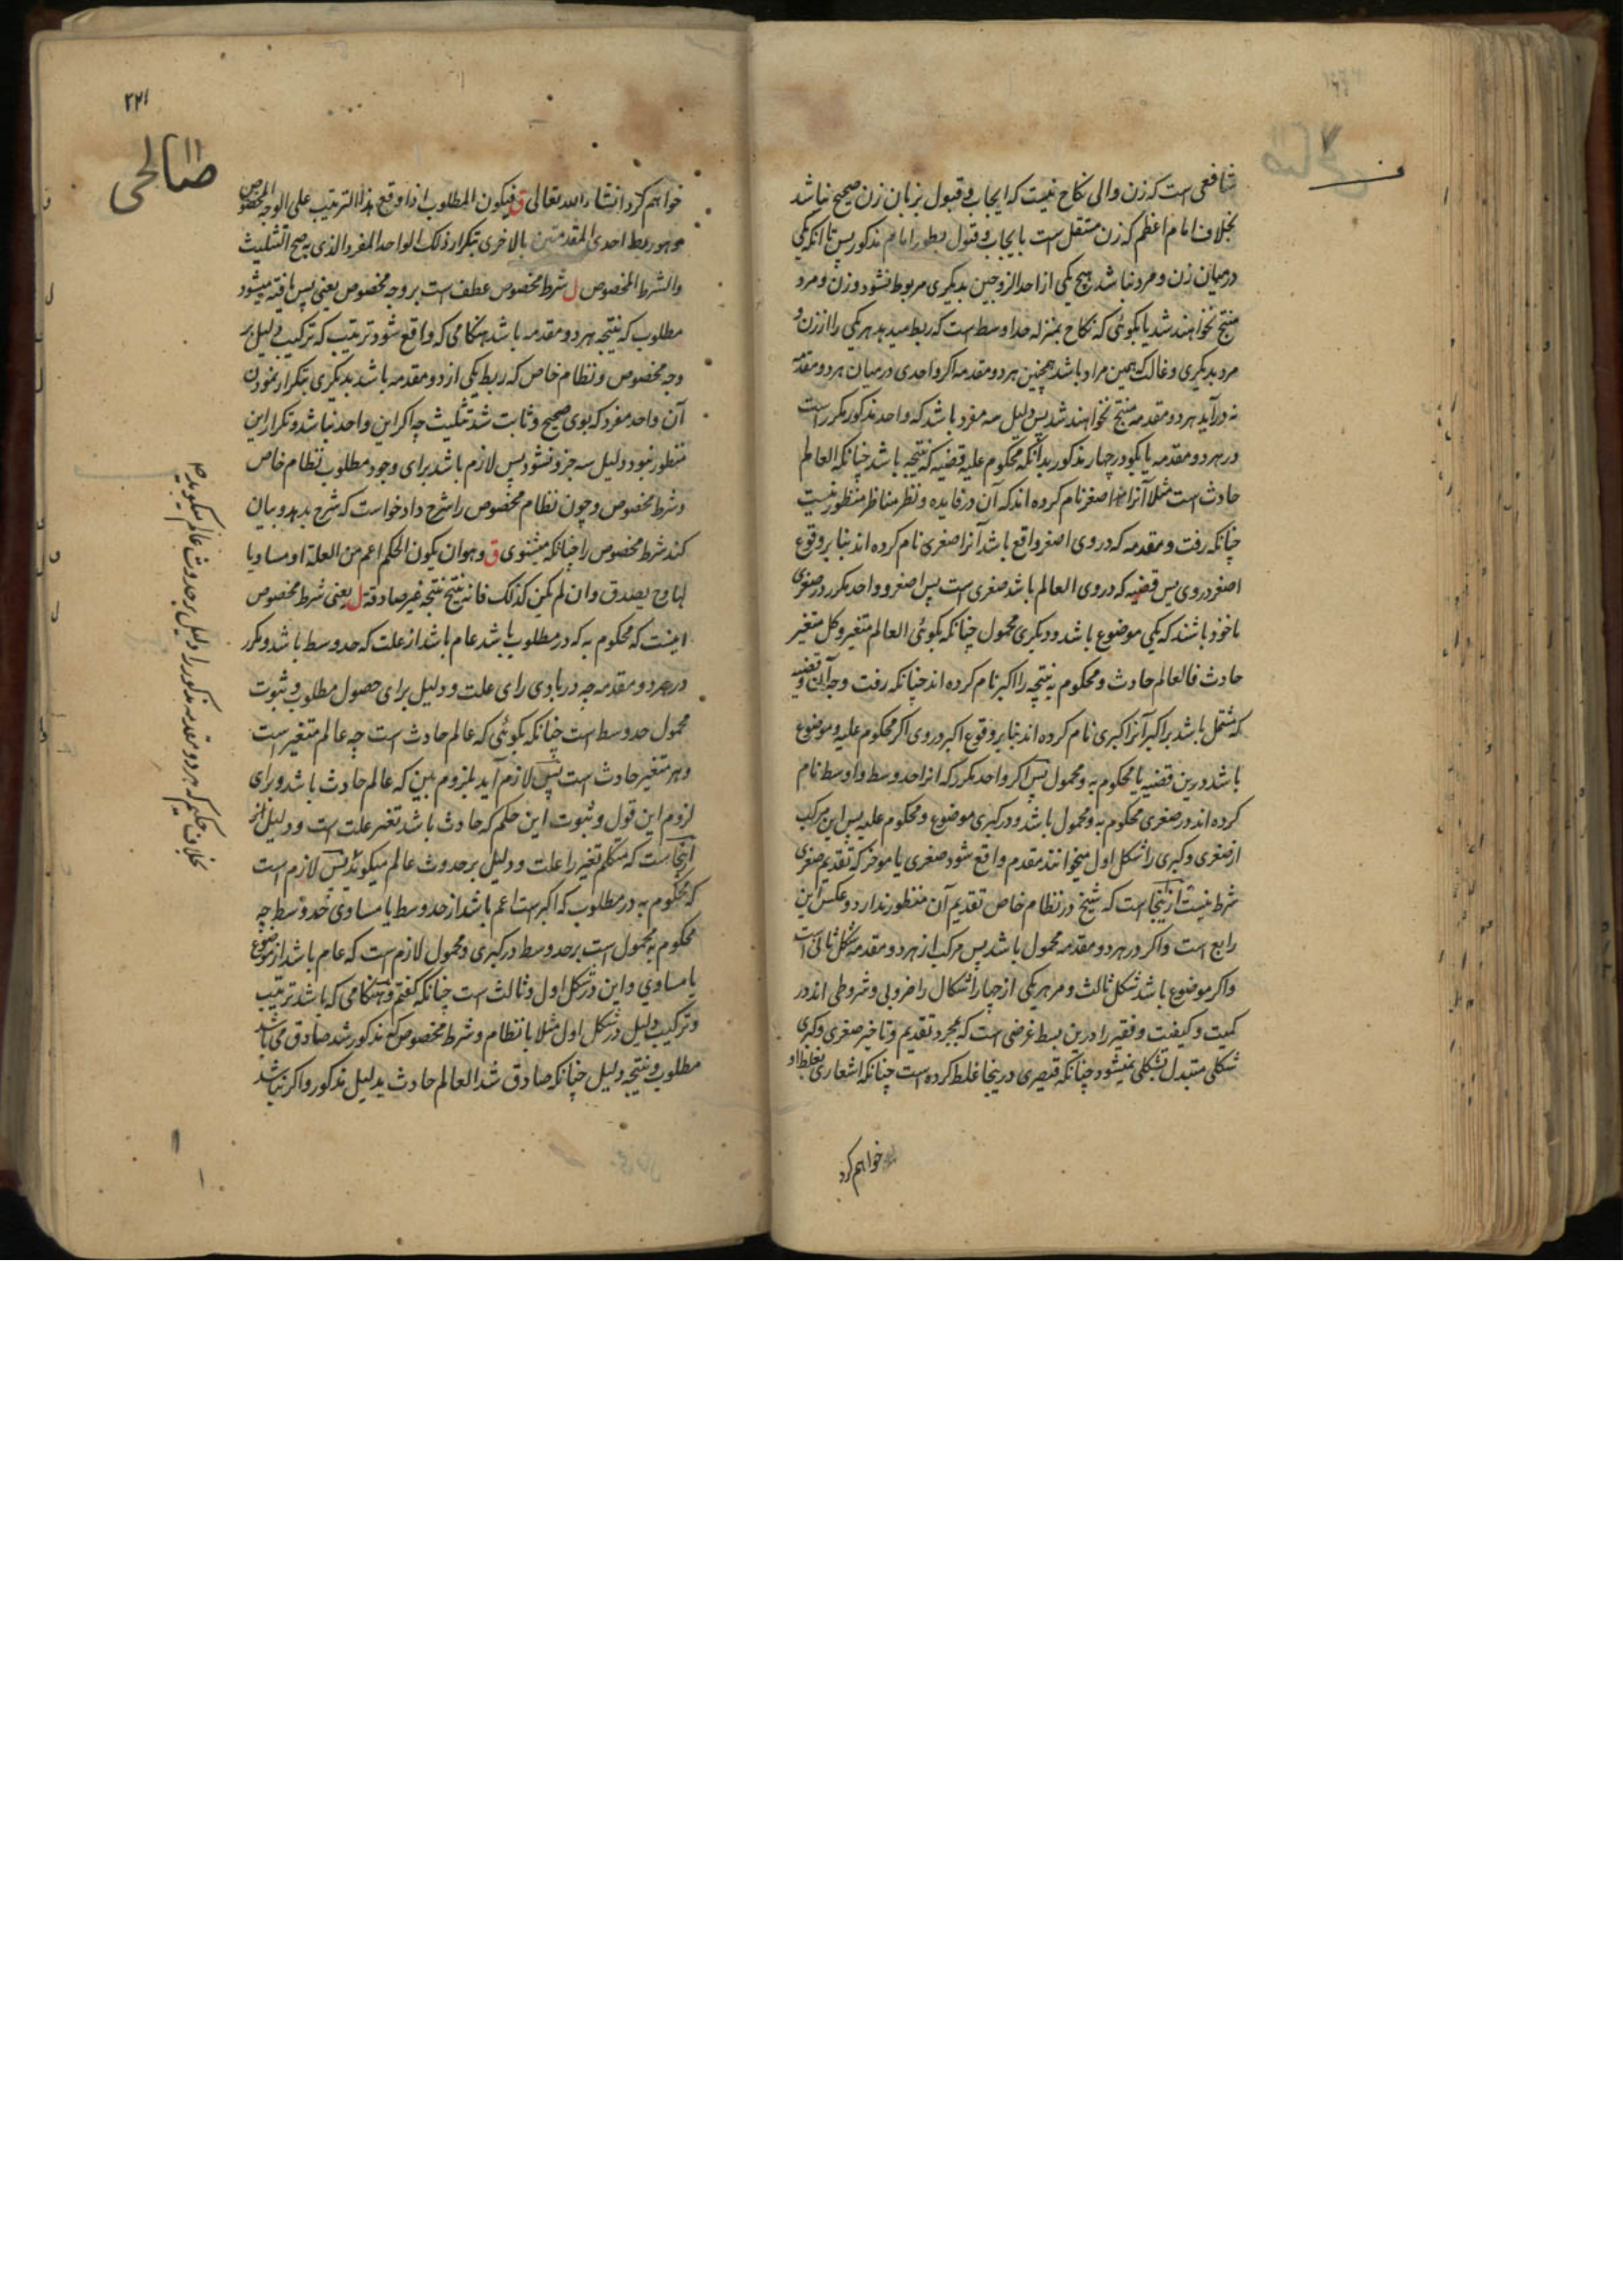 شافعی است که زن والی نکاح نیست که ایجاب و قبول بزبان زن صحیح نباشد
بخلاف امام اعظم که زن مستقل است بایجاب و قبول بطور امام مذکور پس تا آنکه یکی
درمیان زن و مرد نباشد هیچ یکی از احد الزوجین بدیگری مربوط نشود و زن و مرد
منتج نخواهند شد یا بگوئی که نکاح بمنزله حد اوسط است که ربط میدهد هر یکی را از زن و
مرد بدیگری و غالب که همین مراد باشد همچنین هر دو مقدمه اگر واحدی درمیان هر دو مقدمه
نه درآید هر دو مقدمه منتج نخواهند شد پس دلیل سه مفرد باشد که واحد مذکور مکرر است
در هر دو مقدمه یا بگو در چهار مذکور بدانکه محکوم علیه قضیه که نتیجه باشد چنانکه العالم
حادث است مثلا آنرا اصغر نام کرده اند که آن در فایده و نظر مناظر منظور نیست
چنانکه رفت و مقدمه که در وی اصغر واقع باشد آنرا صغری نام کرده اند بنا بر وقوع
اصغر در وی پس قضیه که در وی العالم باشد صغری است پس اصغر و واحد مکرر در صغری
ماخوذ باشند که یکی موضوع باشد و دیگری محمول چنانکه بگوئی العالم متغیر و کل متغیر
حادث فالعالم حادث و محکوم به نتیجه را اکبر نام کرده اند چنانکه رفت وجه آن و قضیه
که مشتمل باشد بر اکبر آنرا کبری نام کرده اند بنا بر وقوع اکبر در وی اگر محکوم علیه و موضوع
باشد درین قضیه یا محکوم به و محمول پس اگر واحد مکرر که انرا حد وسط و اوسط نام
کرده اند در صغری محکوم به و محمول باشد و در کبری موضوع و محکوم علیه پس این مرکب
از صغری و کبری را شکل اول میخوانند مقدم واقع شود صغری یا موخر که تقدیم صغری
شرط نیست ازینجا است که شیخ در نظام خاص تقدیم آن منظور ندارد و عکس این
رابع است و اگر در هر دو مقدمه محمول باشد پس مرکب از هر دو مقدمه شکل ثانی است
و اگر موضوع باشد شکل ثالث و مر هر یکی از چهار اشکال را ضروبی و شروطی اند در
کمیت و کیفیت و فقیر را درین بسط غرضی است که بمجرد تقدیم و تاخیر صغری و کبری
شکلی متبدل بشکلی نمیشود چنانکه قیصری درینجا غلط کرده است چنانکه اشعاری بغلط او
خواهم کرد
۲۲۱
صالحی
خواهم کرد انشاء الله تعالی ق فیکون المطلوب اذا وقع هذا الترتیب علی الوجه المخصوص
وهو ربط احدی المقدمتین بالاخری بتکرار ذلک الواحد المفرد الذی به صح التثلیث
والشرط المخصوص ل شرط مخصوص عطف است بر وجه مخصوص یعنی پس یافته میشود
مطلوب که نتیجه هر دو مقدمه باشد هنگامی که واقع شود ترتیب که ترکیب دلیل بر
وجه مخصوص و نظام خاص که ربط یکی از دو مقدمه باشد بدیگری بتکرار نمودن
آن واحد مفرد که بوی صحیح و ثابت شد تثلیث چه اگر این واحد نباشد و تکرار این
منظور نبود دلیل سه جزو نشود پس لازم باشد برای وجود مطلوب نظام خاص
و شرط مخصوص و چون نظام مخصوص را شرح داد خواست که شرح بدهد و بیان
کند شرط مخصوص را چنانکه میشنوی ق وهو ان یکون الحکم اعم من العلة او مساویا
لها وح یصدق وان لم یکن کذلک فانه ینتج نتیجة غیر صادقة ل یعنی شرط مخصوص
اینست که محکوم به که در مطلوب باشد عام باشد از علت که حد وسط باشد و مکرر
در هر دو مقدمه چه در بادی رای علت و دلیل برای حصول مطلوب و ثبوت
محمول حد وسط است چنانکه بگوئی که عالم حادث است چه عالم متغیر است
و هر متغیر حادث است پس لازم آید بلزوم بین که عالم حادث باشد و برای
لزوم این قول و ثبوت این حکم که حادث باشد تغیر علت است و دلیل از
اینجاست که متکلم تغیر را علت و دلیل بر حدوث عالم میگوید پس لازم است
که محکوم به در مطلوب که اکبر است اعم باشد از حد وسط یا مساوی حد وسط چه
محکوم به محمول است بر حد وسط در کبری و محمول لازم است که عام باشد از موضوع
یا مساوی و این در شکل اول و ثالث است چنانکه گفتم و هنگامی که باشد ترتیب
و ترکیب دلیل در شکل اول مثلا با نظام و شرط مخصوص که مذکور شد صادق می باشد
مطلوب و نتیجه دلیل چنانکه صادق شد العالم حادث بدلیل مذکور و اگر نباشد
بخلاف حکیم که هر دو مقدمه مذکور را دلیل بر حدوث عالم میگوید